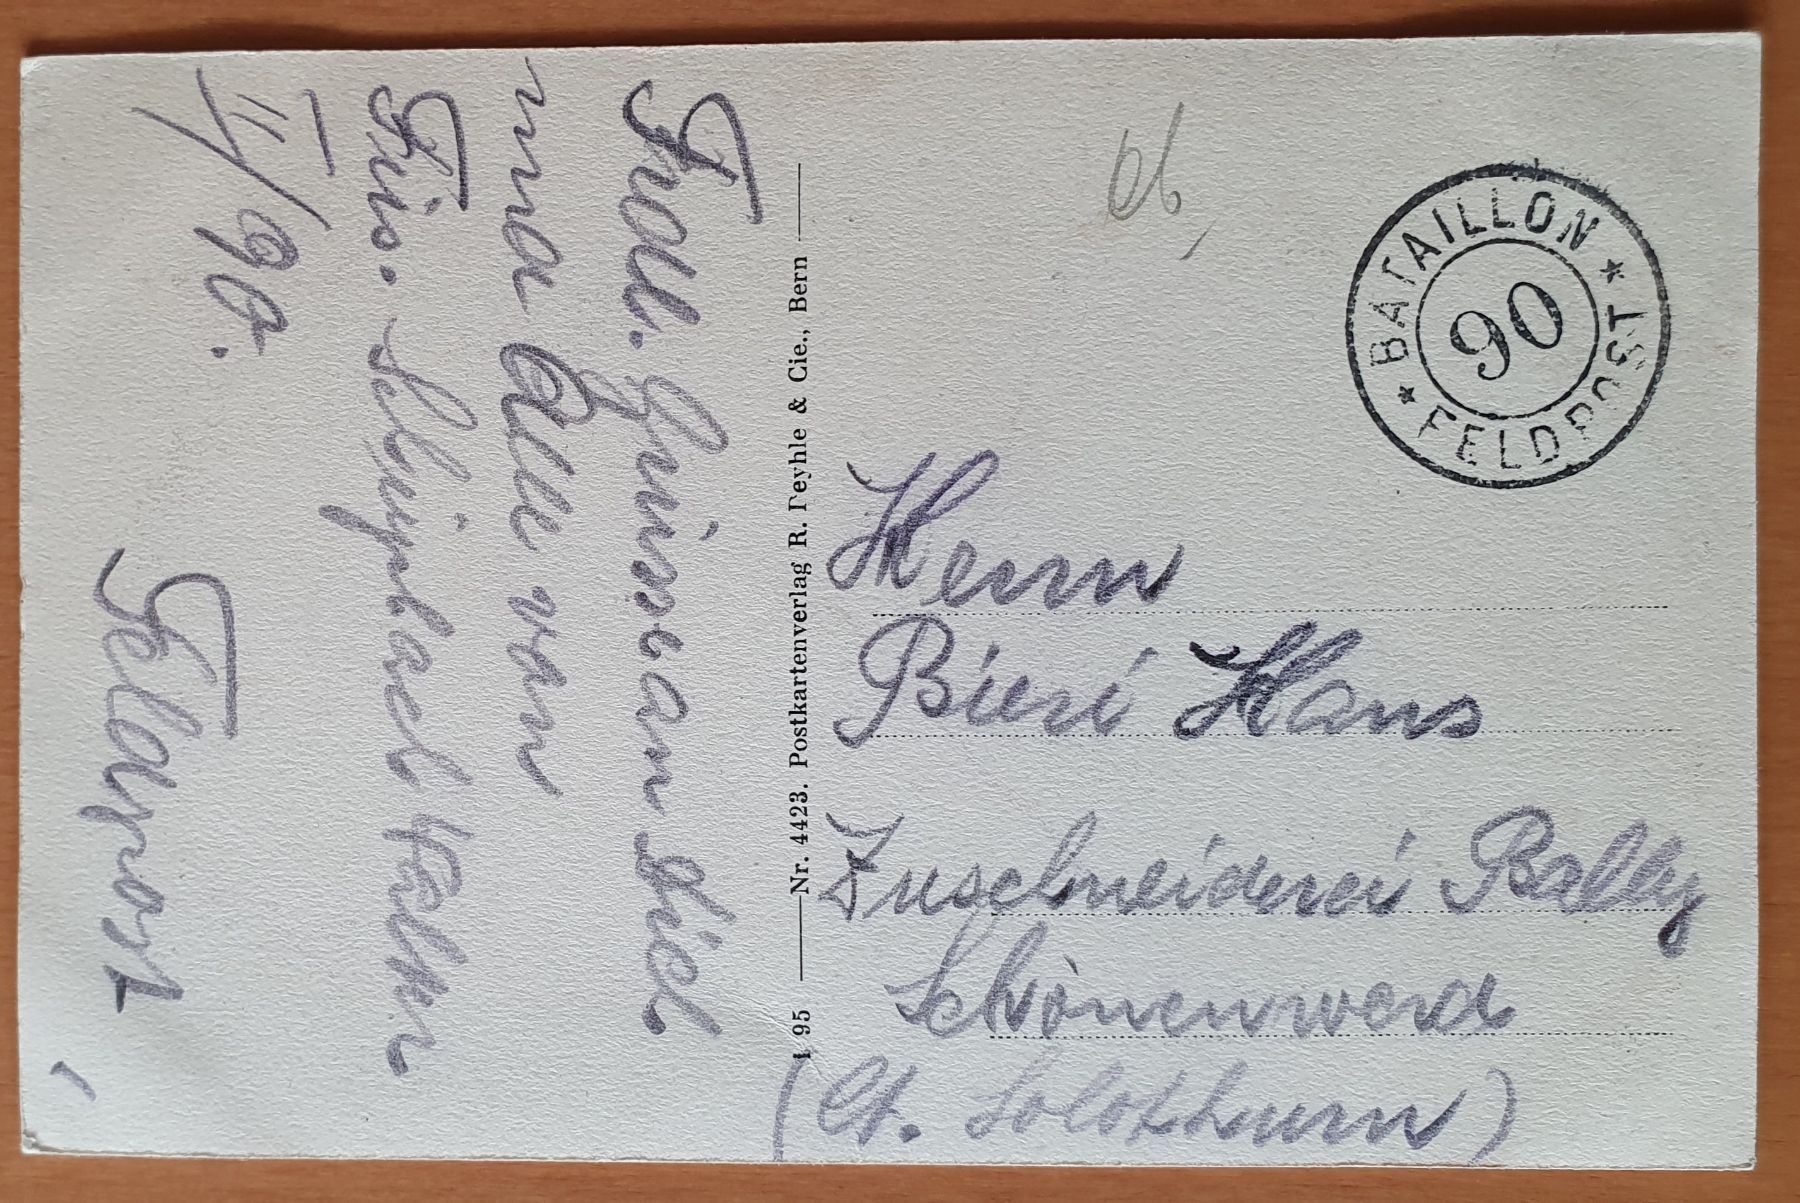 Frdl. Grüsse an Dich
und Alle von
Füs. Schürbach Walter
II/90.
Feldpost
495 — Nr. 4423. Postkartenverlag R. Feyhle & Cie., Bern
BATAILLON
90
FELDPOST
Herrn
Bieri Hans
Zuschneiderei Bally
Schönenwerd
(Ct. Solothurn)